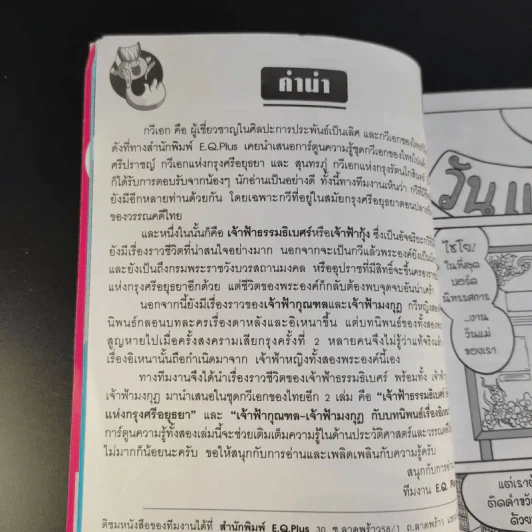 คำนำ
กวีเอก คือ ผู้เชี่ยวชาญในศิลปะการประพันธ์เป็นเลิศ และกวีเอกของไทย
ดังที่ทางสำนักพิมพ์ E.Q.Plus เคยนำเสนอการ์ตูนความรู้ชุดกวีเอกของไทย
ศรีปราชญ์ กวีเอกแห่งกรุงศรีอยุธยา และ สุนทรภู่ กวีเอกแห่งกรุงรัตนโกสินทร์
ก็ได้รับการตอบรับจากน้องๆ นักอ่านเป็นอย่างดี ทั้งนี้ทางทีมงานเห็นว่า
ยังมีอีกหลายท่านด้วยกัน โดยเฉพาะกวีที่อยู่ในสมัยกรุงศรีอยุธยาตอนปลาย
ของวรรณคดีไทย
และหนึ่งในนั้นก็คือ เจ้าฟ้าธรรมธิเบศร์หรือเจ้าฟ้ากุ้ง ซึ่งเป็น
ยังมีเรื่องราวชีวิตที่น่าสนใจอย่างมาก นอกจากจะเป็นกวีแล้วพระองค์ยัง
และยังเป็นถึงกรมพระราชวังบวรสถานมงคล หรืออุปราชที่มีสิทธิ์จะขึ้นครอง
แห่งกรุงศรีอยุธยาอีกด้วย แต่ชีวิตของพระองค์ก็กลับต้องพบจุดจบอันน่าเศร้า
นอกจากนี้ยังมีเรื่องราวของเจ้าฟ้ากุณฑลและเจ้าฟ้ามงกุฎ กวีหญิง
นิพนธ์กลอนบทละครเรื่องดาหลังและอิเหนาขึ้น แต่บทนิพนธ์ของทั้งสอง
สูญหายไปเมื่อครั้งสงครามเสียกรุงครั้งที่ 2 หลายคนจึงไม่รู้ว่าแท้จริงแล้ว
เรื่องอิเหนานั้นถือกำเนิดมาจาก เจ้าฟ้าหญิงทั้งสองพระองค์นี้เอง
ทางทีมงานจึงได้นำเรื่องราวชีวิตของเจ้าฟ้าธรรมธิเบศร์ พร้อมทั้ง เจ้าฟ้า
เจ้าฟ้ามงกุฎ มานำเสนอในชุดกวีเอกของไทยอีก 2 เล่ม คือ "เจ้าฟ้าธรรมธิเบศร์
แห่งกรุงศรีอยุธยา" และ "เจ้าฟ้ากุณฑล-เจ้าฟ้ามงกุฎ กับบทนิพนธ์เรื่อง
การ์ตูนความรู้ทั้งสองเล่มนี้จะช่วยเติมเต็มความรู้ในด้านประวัติศาสตร์และวรรณคดี
ไม่มากก็น้อยนะครับ ขอให้สนุกกับการอ่านและเพลิดเพลินกับความรู้ครับ
สนุกกับการอ่าน
ทีมงาน E.Q
ติชมหนังสือของทีมงานได้ที่ สำนักพิมพ์ E.Q.Plus 30 ซ.ลาดพร้าว58/1 ถ.ลาดพร้าว
วันแม่
ไชโย!
ในที่สุด
บอร์ด
นิทรรศการ
...งาน
วันแม่
ของเรา
แต่เรา
ติดคำขวัญ
ด้วย